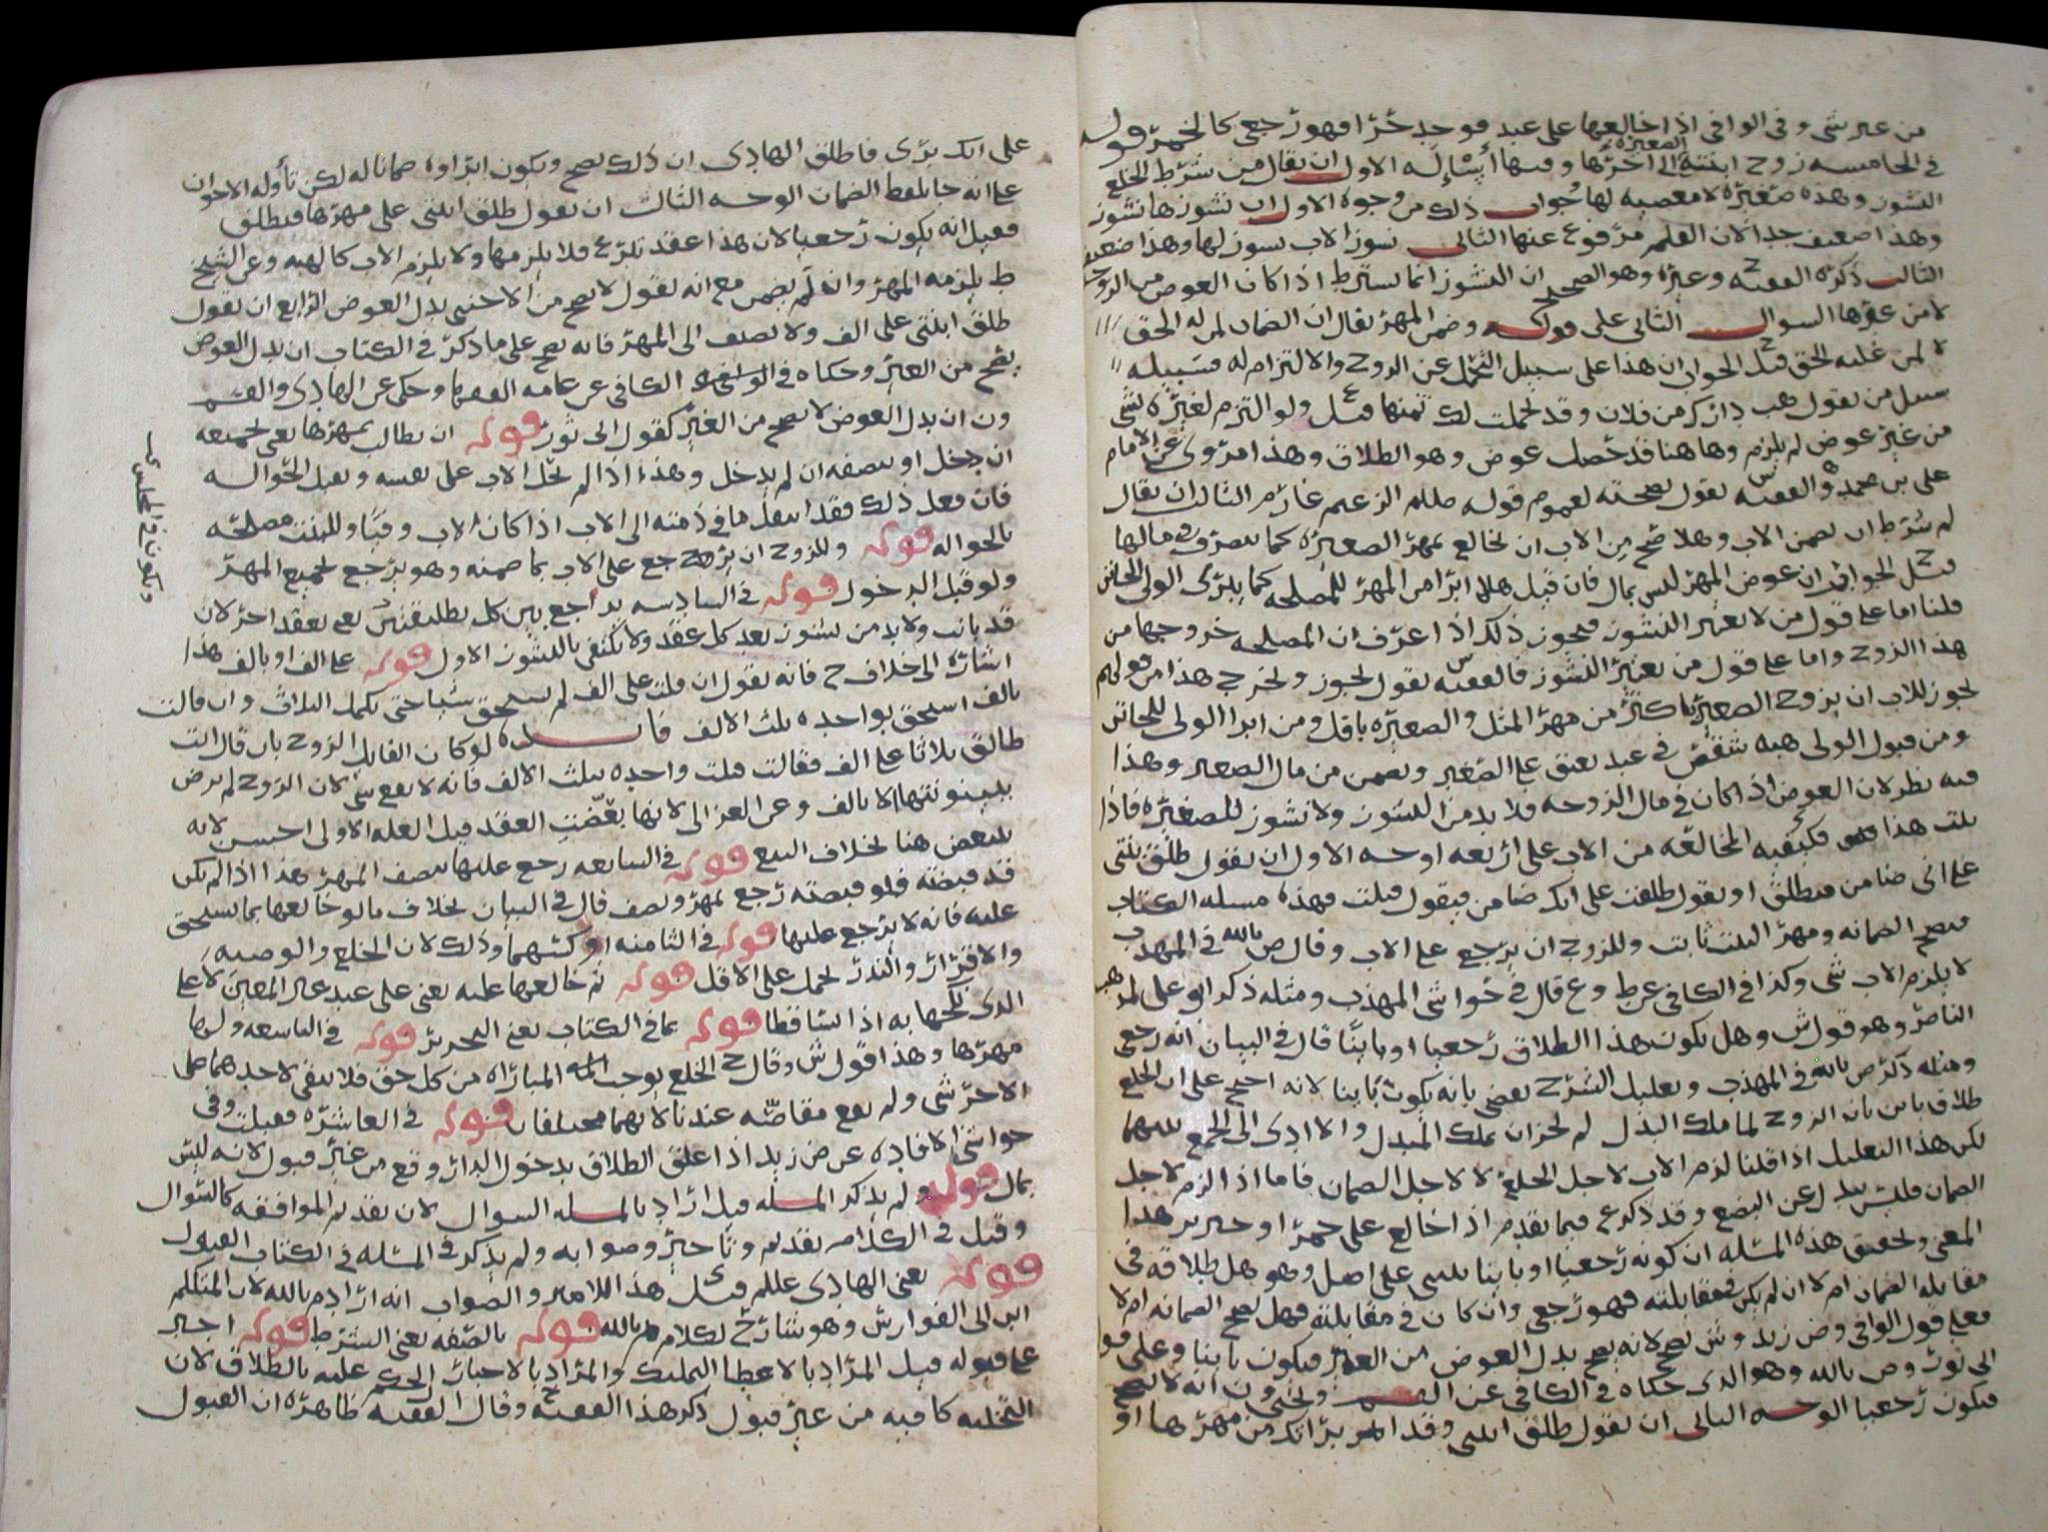 من غير شي وفي الوافي اذا خالعها على عبد فوجد حرا فهو رجعي كالخمر قوله
في الخامسه زوج ابنته الصغيره الى اخرها وفيها أسئلة الاول ان يقال من شرط الخلع
النشوز وهذه صغيره لا معصيه لها جواب ذلك من وجوه الاول ان نشوزها نشوز
وهذا ضعيف جدا لان القلم مرفوع عنها الثاني نشوز الاب نشوز لها وهذا ضعيف
الثالث ذكره الفقيه ح وغيره وهو الصحيح ان النشوز انما يشترط اذا كان العوض من الزوجه
لا من غيرها السوال الثاني على قولكم وضمن المهر يقال ان الضمان لمن له الحق
لا لمن عليه الحق قيل ح الجواب ان هذا على سبيل التحمل عن الزوج والالتزام له فسبيله
سبيل من يقول هب دارك من فلان وقد تحملت لك ثمنها قيل ع ولو التزم لغيره بشي
من غير عوض لم يلزم وها هنا قد حصل عوض وهو الطلاق وهذا مروي عن الامام
على بن محمد والفقيه س يقول بصحته لعموم قوله صللم الزعيم غارم الثالث ان يقال
لم شرط ان يضمن الاب وهلا صح من الاب ان يخالع بمهر الصغيره كما يتصرف في مالها
قيل ح الجواب ان عوض المهر ليس بمال فان قيل هلا ابرا من المهر للمصلحه كما يبري الولي الجائز
قلنا اما على قول من لا يعتبر النشوز فيجوز ذلك اذا عرف ان المصلحه خروجها من
هذا الزوج واما على قول من يعتبر النشوز فالفقيه س يقول يجوز ويخرج هذا من قولهم
يجوز للاب ان يزوج الصغير باكثر من مهر المثل والصغيره باقل ومن ابرا الولى للجائز
ومن قبول الولي هبه شقص في عبد يعتق على الصغير ويضمن من مال الصغير وهذا
فيه نظر لان العوض اذا كان في مال الزوجه فلا بد من النشوز ولا نشوز للصغيره فاذا
ثبت هذا فكيفيه المخالعه من الاب على اربعه اوجه الاول ان يقول طلق بنتي
على اني ضامن فيطلق او يقول طلقت على انك ضامن فيقول قبلت فهذه مسله الكتاب
فيصح الضمانه ومهر البنت ثابت وللزوج ان يرجع على الاب وقال ص بالله في المهذب
لا يلزم الاب شي وكذا في الكافي عن ط وع قال في حواشي المهذب ومثله ذكر ابو علي لمذهب
الناصر وهو قول ش وهل يكون هذا الطلاق رجعيا او باينا قال في البيان انه رجعي
ومثله ذكر ص بالله في المهذب وتعليل الشرح يقضي بانه يكون باينا لانه احتج على ان الخلع
طلاق باين بان الزوج لما ملك البدل لم يجز ان يملك المبدل والا ادى الى الجمع بينهما
لكن هذا التعليل اذا قلنا لزم الاب لاجل الخلع لا لاجل الضمان فاما اذا لزم لاجل
الضمان فليس ببدل عن البضع وقد ذكر ع فيما تقدم اذا خالع على خمر او خنزير هذا
المعنى وتحقيق هذه المسئله ان كونه رجعيا او باينا ينبني على اصل وهو هل طلاقه في
مقابله الضمان ام لا ان لم يكن في مقابلته فهو رجعي وان كان في مقابلته فهل تصح الضمانه ام لا
فعلى قول الوافي وض زيد وش تصح لانه يصح بدل العوض من الغير فيكون باينا وعلى قو
الى ثور وص بالله وهو الذي حكاه في الكافي عن القسم ويحيى ون انه لا يصح
فيكون رجعيا الوجه الثاني ان يقول طلق ابنتي وقد ابريتك من مهرها او
على انك بري فاطلق الهادي ان ذلك يصح ويكون ابراوه ضمانا له لكن تأوله الاخوان
على انه جا بلفظ الضمان الوجه الثالث ان يقول طلق ابنتي على مهرها فيطلق
فقيل انه يكون رجعيا لان هذا عقد تبرع فلا يلزمها ولا يلزم الاب كالهبه وعن الشيخ
ط يلزمه المهر وان لم يضمن مع انه يقول لا يصح من الاجنبي بدل العوض الرابع ان يقول
طلق ابنتي على الف ولا يضيف الى المهر فانه يصح على ما ذكر في الكتاب ان بدل العوض
يصح من الغير وحكاه في الوافي الكافي عن عامه الفقها وحكى عن الهادي والقسم
ون ان بدل العوض لا يصح من الغير كقول ابي ثور قوله ان يطالب بمهرها يعني بجميعه
ان دخل او بنصفه ان لم يدخل وهذا اذا لم يحل الاب على نفسه وتقبل الحواله
فان فعل ذلك فقد انتقل ما في ذمته الى الاب اذا كان الاب وفيا وللبنت مصلحه
بالحواله قوله وللزوج ان يرجع على الاب بما ضمنه وهو يرجع بجميع المهر
ولو قبل الدخول قوله في السادسه يراجع بين كل تطليقتين يعني بعقد اخر لان
قد بانت ولا بد من نشوز بعد كل عقد ولا يكتفى بالنشوز الاول قوله على الف او بالف هذا
اشاره الى خلاف ح فانه يقول ان قلت على الف لم يستحق شيا حتى يكمل الثلاث وان قالت
بالف استحق بواحده ثلث الالف فائده لو كان القايل الزوج بان قال انت
طالق ثلاثا على الف فقالت قبلت واحده بثلث الالف فانه لا يقع شي لان الزوج لم يرض
ببينونتها الا بالف وعن الغزالي لانها بعضت العقد قيل العله الاولى احسن لانه
يتبعض هنا بخلاف البيع قوله في السابعه رجع عليها بنصف المهر هذا اذا لم يكن
قد قبضته فلو قبضته رجع بمهر ونصف قال في البيان بخلاف ما لو خالعها بما يستحق
عليه فانه لا يرجع عليها قوله في الثامنه او كسهما وذلك لان الخلع والوصيه
والاقرار والنذر يحمل على الاقل قوله ثم خالعها عليه يعني على عبد غير المعين لا على
الذي نكحها به اذا تساقطا قوله بما في الكتاب يعني التحرير قوله في التاسعه ولها
مهرها وهذا قول ش وقال ح الخلع يوجب المباراه من كل حق فلا يبقى لاحدهما على
الاخر شي ولم يقع مقاصه عندنا لانهما مختلفان قوله في العاشره فقبلت وفي
حواشي الافاده عن ض زيد اذا علق الطلاق بدخول الدار وقع من غير قبول لانه ليس
بمال قوله ولم يذكر المسله قيل اراد بالمسله السوال لان تقديم الموافقه كالسوال
وقيل في الكلام تقديم وتاخير وصوابه ولم يذكر في المسئله في الكتاب القبول
قوله يعني الهادي عللم قيل ي هذا اللامير والصواب انه اراد م بالله لان المتكلم
ابن ابي الفوارس وهو شارح لكلام م بالله قوله بالصفه يعني الشرط قوله اجبر
على قبوله قيل المراد بالاعطا التمليك والمراد بالاجبار الحكم عليه بالطلاق لان
التخليه كافيه من غير قبول ذكر هذا الفقيه ح وقال الفقيه ظاهره ان القبول
ويكون في المجلس